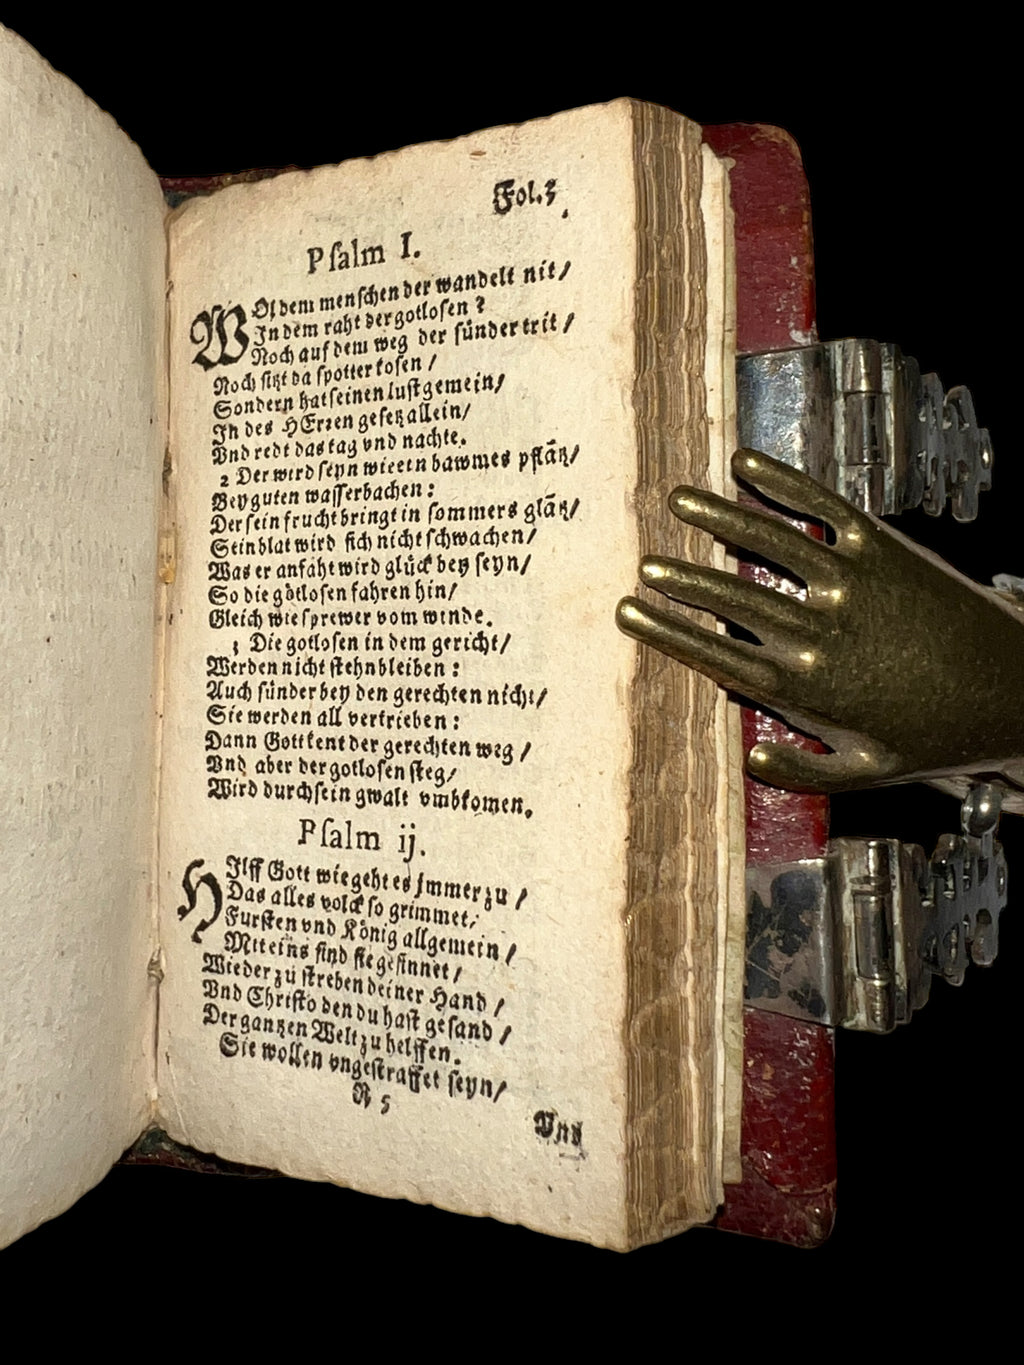 Fol. 3
Pſalm I.
WOl dem menſchen der wandelt nit/
In dem raht der gotloſen ?
Noch auf dem weg der ſünder trit /
Noch ſitzt da ſpotter koſen /
Sondern hat ſeinen luſt gemein/
In des HErꝛen geſetz allein/
Vnd redt das tag vnd nachte.
2 Der wird ſeyn wie ein bawmes pflātz/
Bey guten waſſerbachen :
Der ſein frucht bringt in ſommers glātz/
Sein blat wird ſich nicht ſchwachen/
Was er anfäht wird glück bey ſeyn/
So die götloſen fahren hin/
Gleich wie ſprewer vom winde.
3 Die gotloſen in dem gericht/
Werden nicht ſtehn bleiben :
Auch ſünder bey den gerechten nicht/
Sie werden all vertrieben :
Dann Gott kent der gerechten weg /
Vnd aber der gotloſen ſteg/
Wird durch ſein gwalt vmbkomen.
Pſalm ij.
HIlff Gott wie geht es jmmer zu /
Das alles volck ſo grimmet/
Furſten vnd König allgemein /
Mit eins ſind ſie geſinnet /
Wieder zu ſtreben deiner Hand /
Vnd Chriſto den du haſt geſand /
Der gantzen Welt zu helffen.
Sie wollen vngeſtraffet ſeyn/
R 5
Vnd